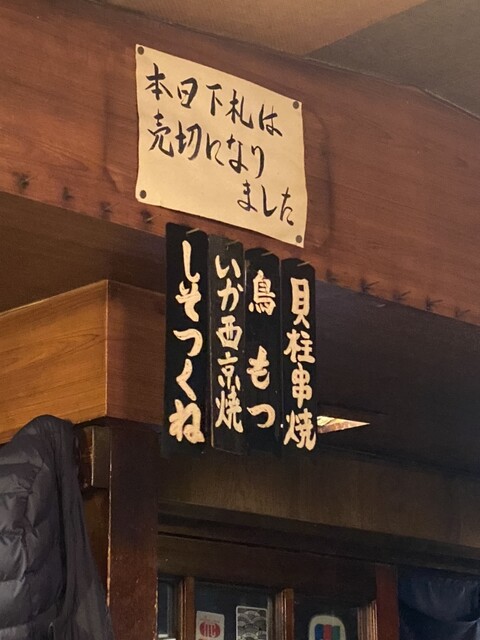 本日下札は
売切になり
ました
貝柱串焼
鳥もつ
いか西京焼
しそつくね